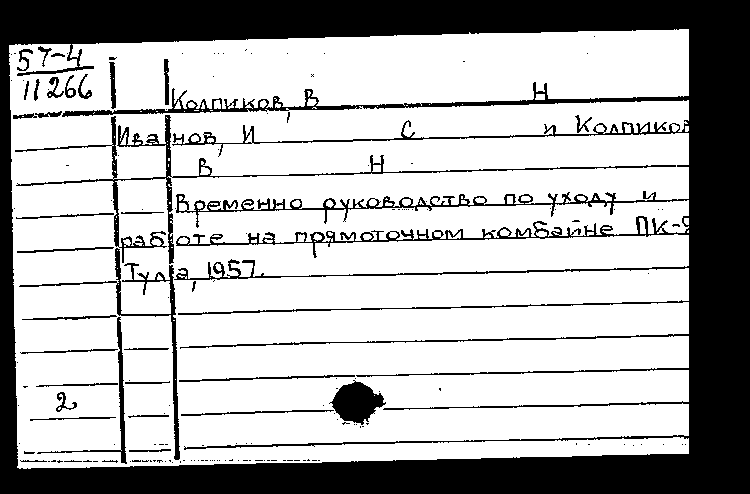 57-4
11266
Колпиков, В Н
Иванов, И С и Колпиков
В Н
Временно руководство по уходу и
работе на прямоточном комбайне ПК-
Тула, 1957.
2